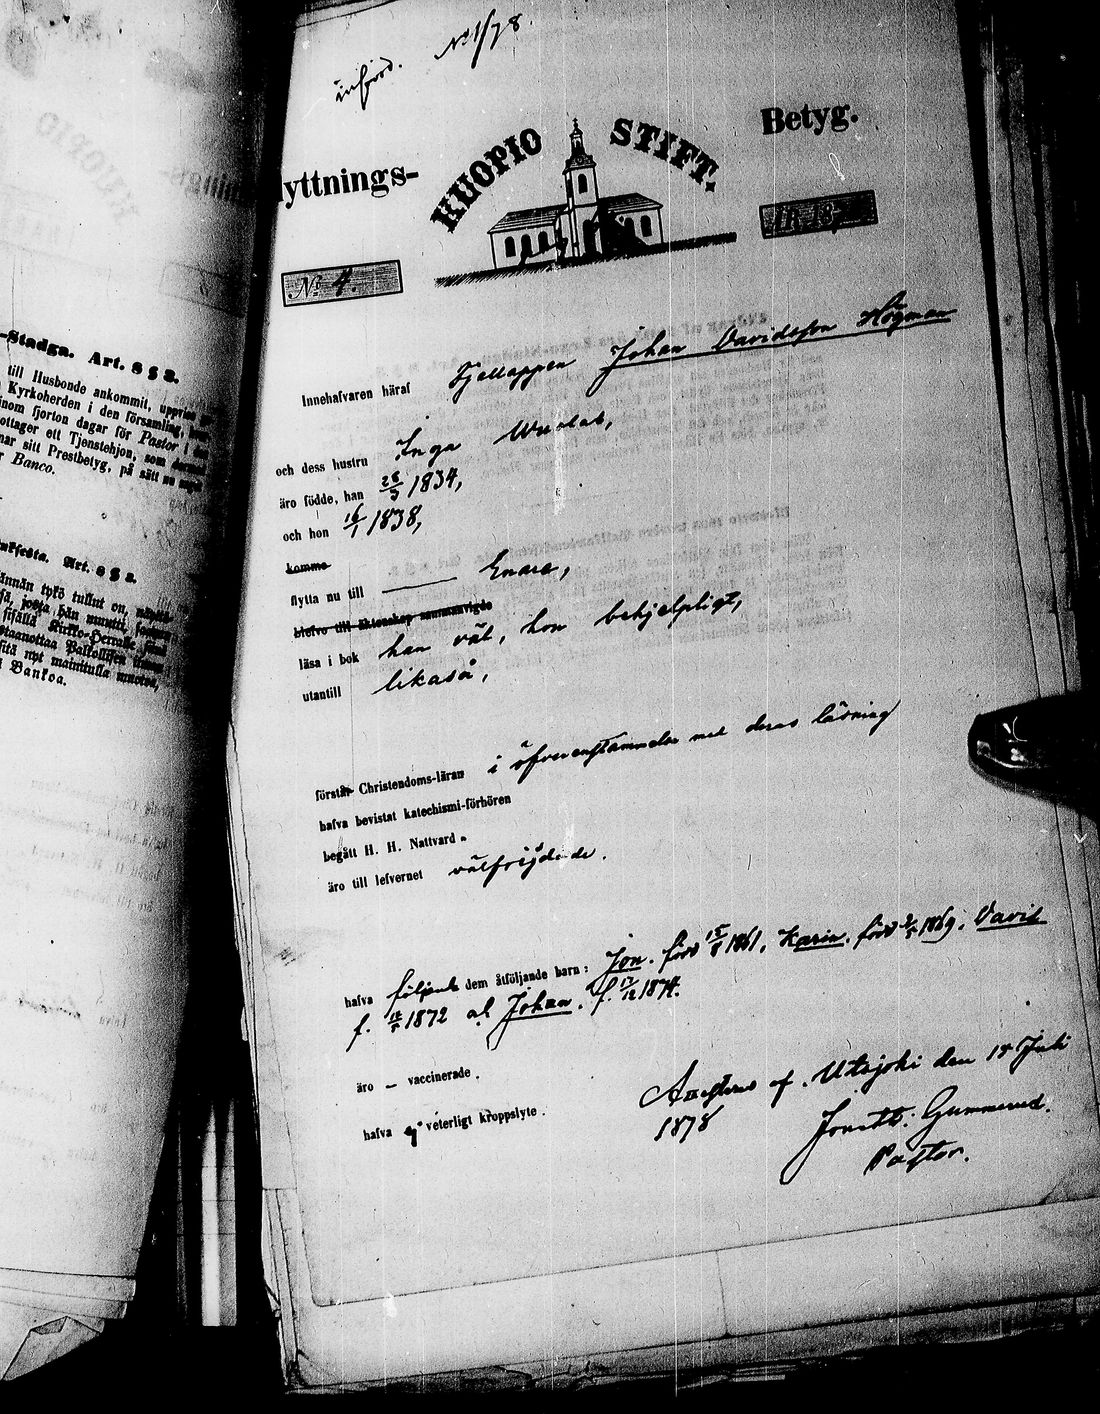 införd. No 1/78
lyttnings- KUOPIO STIFT. Betyg.
No 4.
-Stadga. Art. 8 § 2.
till Husbonde ankommit, uppvise
Kyrkoherden i den församling,
inom fjorton dagar för Pastor i
ottager ett Tjenstehjon, som
nar sitt Prestbetyg, på sätt nu
r Banco.
Art. 8 § 2.
ännän tykö tullut on,
josta hän muutti,
sisällä Kirkko-Herralle
staanottaa Palkollisen
sitä nyt mainitulla muotoa,
Bankoa.
Innehafvaren häraf Fjellappen Johan Davidsson Högman
och dess hustru Inga
äro födde, han 28/3 1834,
och hon 16/1 1838,
komma
flytta nu till Enare,
blefvo till Äktenskap sammanvigde
läsa i bok han väl, hon behjelpligt,
utantill likaså,
förstår Christendoms-läran i öfverenstämmelse med deras läsning
hafva bevistat katechismi-förhören
begått H. H. Nattvard
äro till lefvernet välfrejdade.
hafva följande dem åtföljande barn: Jon. född 15/8 1861, Karin. född 2/5 1869. David
f. 12/5 1872 och Johan. f. 17/12 1874.
äro – vaccinerade.
hafva ej veterligt kroppslyte.
af Utsjoki den 15 Juli
1878
Gummerus.
Pastor.